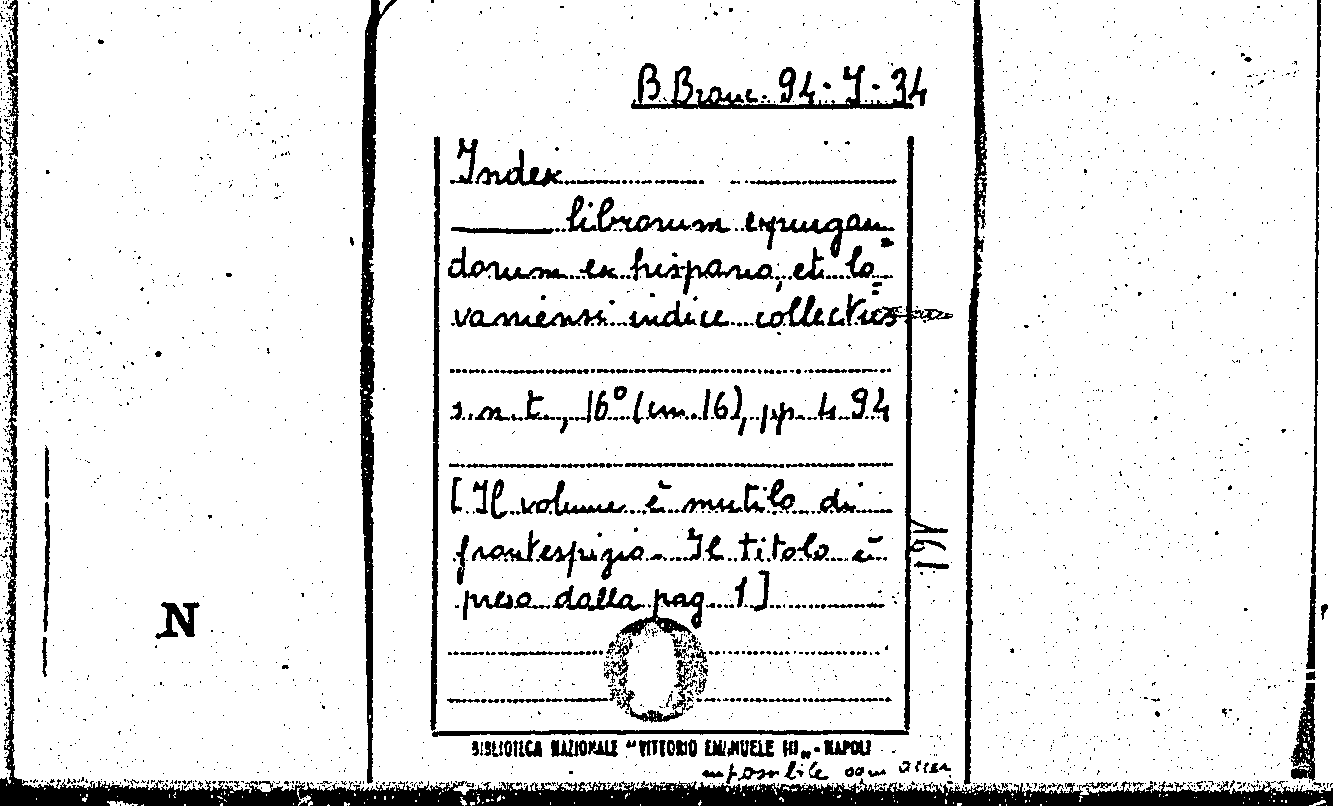 B. Branc. 94-J-34
Index
librorum expurgan=
dorum ex hispano, et lo=
vaniensi indice collectus
s.n.t., 16° (cm. 16), pp. 494
[Il volume è mutilo di
frontespizio. Il titolo è
preso dalla pag. 1]
N
BIBLIOTECA NAZIONALE "VITTORIO EMANUELE III" - NAPOLI